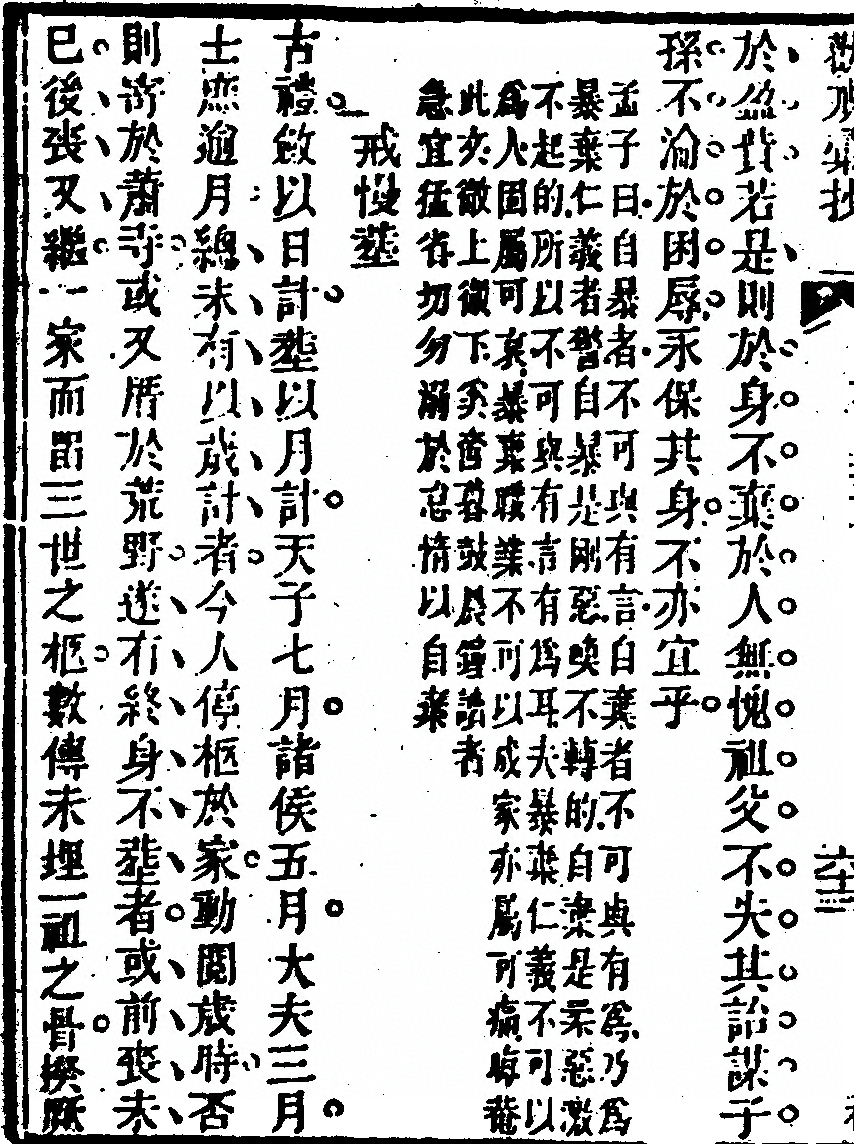 於盎背若是則於身不棄於人無愧祖父不失其詒謀子
孫不淪於困辱永保其身不亦宜乎
孟子曰自暴者不可與有言自棄者不可與有為乃為
暴棄仁義者警自暴是剛惡喚不轉的自棄是柔惡激
不起的所以不可與有言有為耳夫暴棄仁義不可以
為人固屬可哀暴棄職業不可以成家亦屬可痛晦菴
此文徹上徹下奚啻暮鼓晨鐘讀者
急宜猛省勿勿溺於怠惰以自棄
戒慢塟
古禮斂以日計塟以月計天子七月諸侯五月大夫三月
士庶逾月總未有以歲計者今人停柩於家動閱歲時否
則寄於蕭寺或又厝於荒野遂有終身不塟者或前喪未
已後喪又繼一家而畱三世之柩數傳未埋一祖之骨揆厥